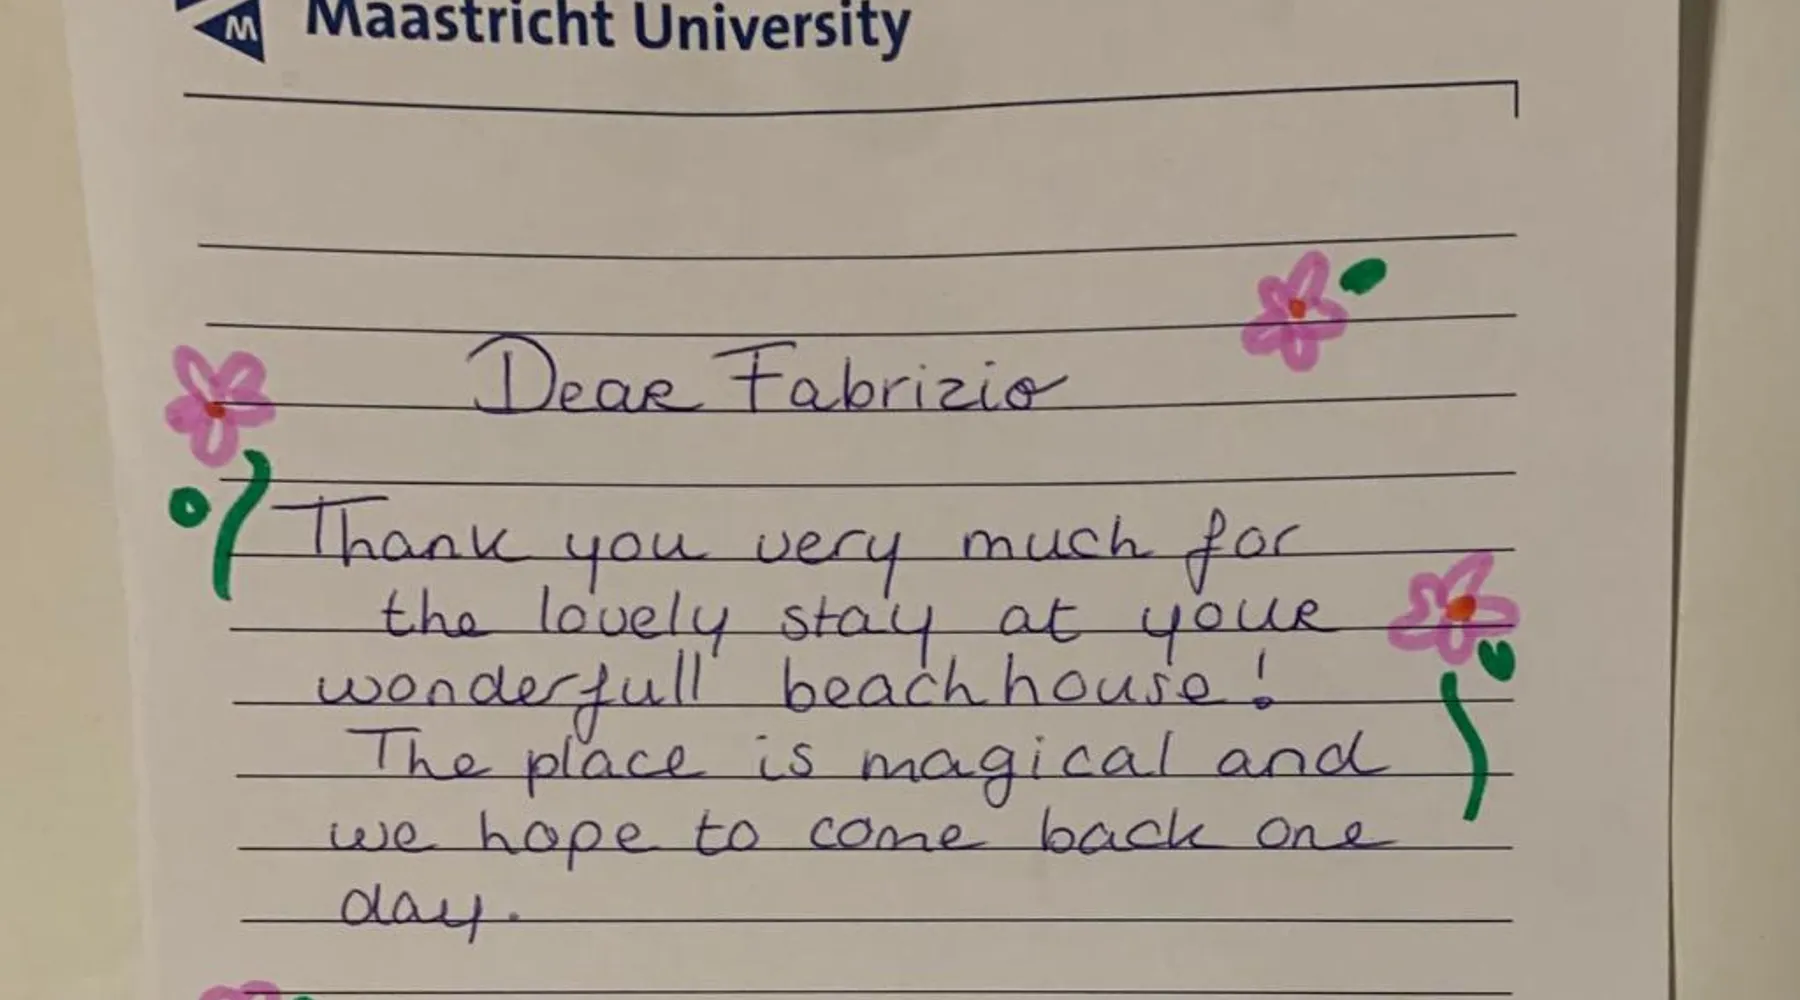 M Maastricht University
Dear Fabrizio
Thank you very much for
the lovely stay at your
wonderfull beachhouse!
The place is magical and
we hope to come back one
day.